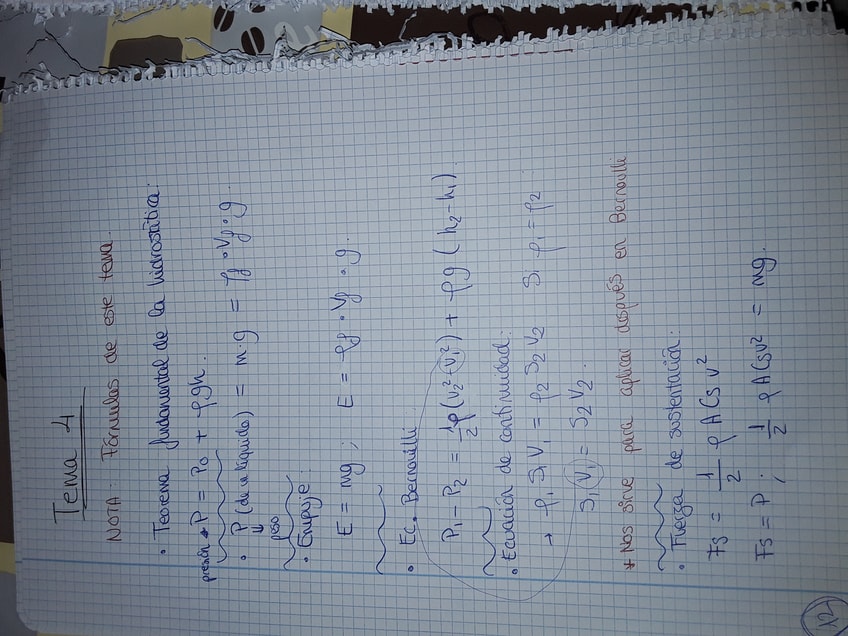 Tema 4
NOTA: Fórmulas de este tema.
• Teorema fundamental de la hidrostática:
presión → P = P₀ + ρgh.
• P (de un líquido) = m·g = ρf · Vf · g.
↓
peso
• Empuje:
E = mg ; E = ρf · Vf · g.
• Ec. Bernouilli
P₁ - P₂ = 1/2 ρ (v₂² - v₁²) + ρg (h₂ - h₁)
• Ecuación de continuidad:
→ ρ₁ S₁ V₁ = ρ₂ S₂ V₂   Si ρ₁ = ρ₂
S₁ V₁ = S₂ V₂.
* Nos sirve para aplicar después en Bernouilli
• Fuerza de sustentación:
Fs = 1/2 ρ A Cs v²
Fs = P ; 1/2 ρ A Cs v² = mg.